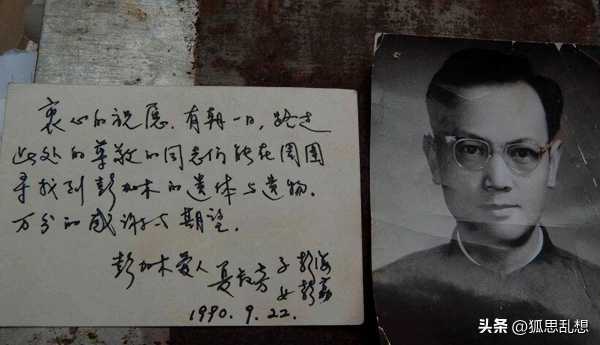 衷心的祝愿,有朝一日,路过
此处的尊敬的同志们能在周围
寻找到彭加木的遗体与遗物。
万分的感谢与期望。
彭加木爱人 夏叔芳 子 彭海
女 彭荔
1990.9.22.
头条 @狐思乱想